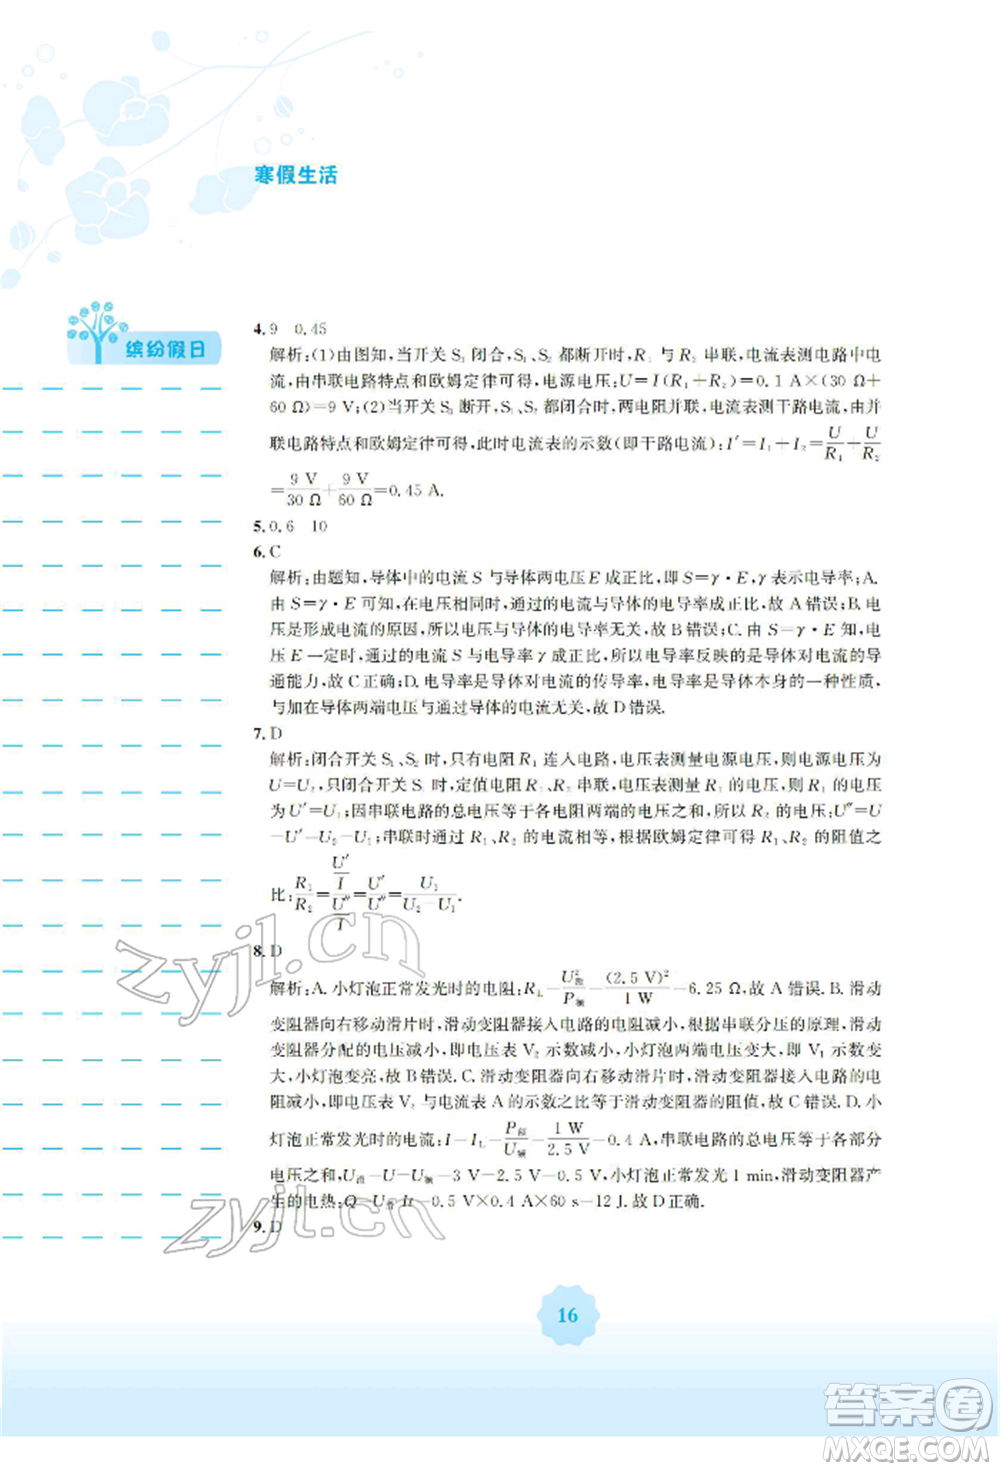 寒假生活
缤纷假日
4.9　0.45
解析:(1)由图知,当开关 S₁ 闭合,S₁、S₂ 都断开时,R₁ 与 R₂ 串联,电流表测电路中电
流,由串联电路特点和欧姆定律可得,电源电压:U=I(R₁+R₂)=0.1 A×(30 Ω+
60 Ω)=9 V;(2)当开关 S₃ 断开,S₁、S₂ 都闭合时,两电阻并联,电流表测干路电流,由并
联电路特点和欧姆定律可得,此时电流表的示数(即干路电流):I′=I₁+I₂=U/R₁+U/R₂
=9 V/30 Ω+9 V/60 Ω=0.45 A.
5.0.6　10
6.C
解析:由题知,导体中的电流 S 与导体两电压 E 成正比,即:S=γ·E,γ 表示电导率;A.
由 S=γ·E 可知,在电压相同时,通过的电流与导体的电导率成正比,故 A 错误;B.电
压是形成电流的原因,所以电压与导体的电导率无关,故 B 错误;C.由 S=γ·E 知,电
压 E 一定时,通过的电流 S 与电导率 γ 成正比,所以电导率反映的是导体对电流的导
通能力,故 C 正确;D.电导率是导体对电流的传导率,电导率是导体本身的一种性质,
与加在导体两端电压与通过导体的电流无关,故 D 错误.
7.D
解析:闭合开关 S₁、S₂ 时,只有电阻 R₁ 连入电路,电压表测量电源电压,则电源电压
U=U₂,只闭合开关 S₁ 时,定值电阻 R₁、R₂ 串联,电压表测量 R₁ 的电压,则 R₁ 的电压
为 U′=U₁;因串联电路的总电压等于各电阻两端的电压之和,所以,R₂ 的电压:U″=U
-U′=U₂-U₁;串联时通过 R₁、R₂ 的电流相等,根据欧姆定律可得 R₁、R₂ 的阻值之
比:R₁/R₂=(U′/I)/(U″/I)=U′/U″=U₁/(U₂-U₁).
8.D
解析:A.小灯泡正常发光时的电阻:R_L=U²额/P额=(2.5 V)²/1 W=6.25 Ω,故 A 错误.B.滑动
变阻器向右移动滑片时,滑动变阻器接入电路的电阻减小,根据串联分压的原理,滑动
变阻器分配的电压减小,即电压表 V₂ 示数减小,小灯泡两端电压变大,即 V₁ 示数变
大,小灯泡变亮,故 B 错误.C.滑动变阻器向右移动滑片时,滑动变阻器接入电路的电
阻减小,即电压表 V₂ 与电流表 A 的示数之比等于滑动变阻器的阻值,故 C 错误.D.小
灯泡正常发光时的电流:I=I_L=P额/U额=1 W/2.5 V=0.4 A,串联电路的总电压等于各部分
电压之和,U滑=U-U额=3 V-2.5 V=0.5 V,小灯泡正常发光 1 min,滑动变阻器产
生的电热:Q=U滑It=0.5 V×0.4 A×60 s=12 J.故 D 正确.
9.D
16
zyjl.cn
zyjl.cn
答案圈
MXQE.COM